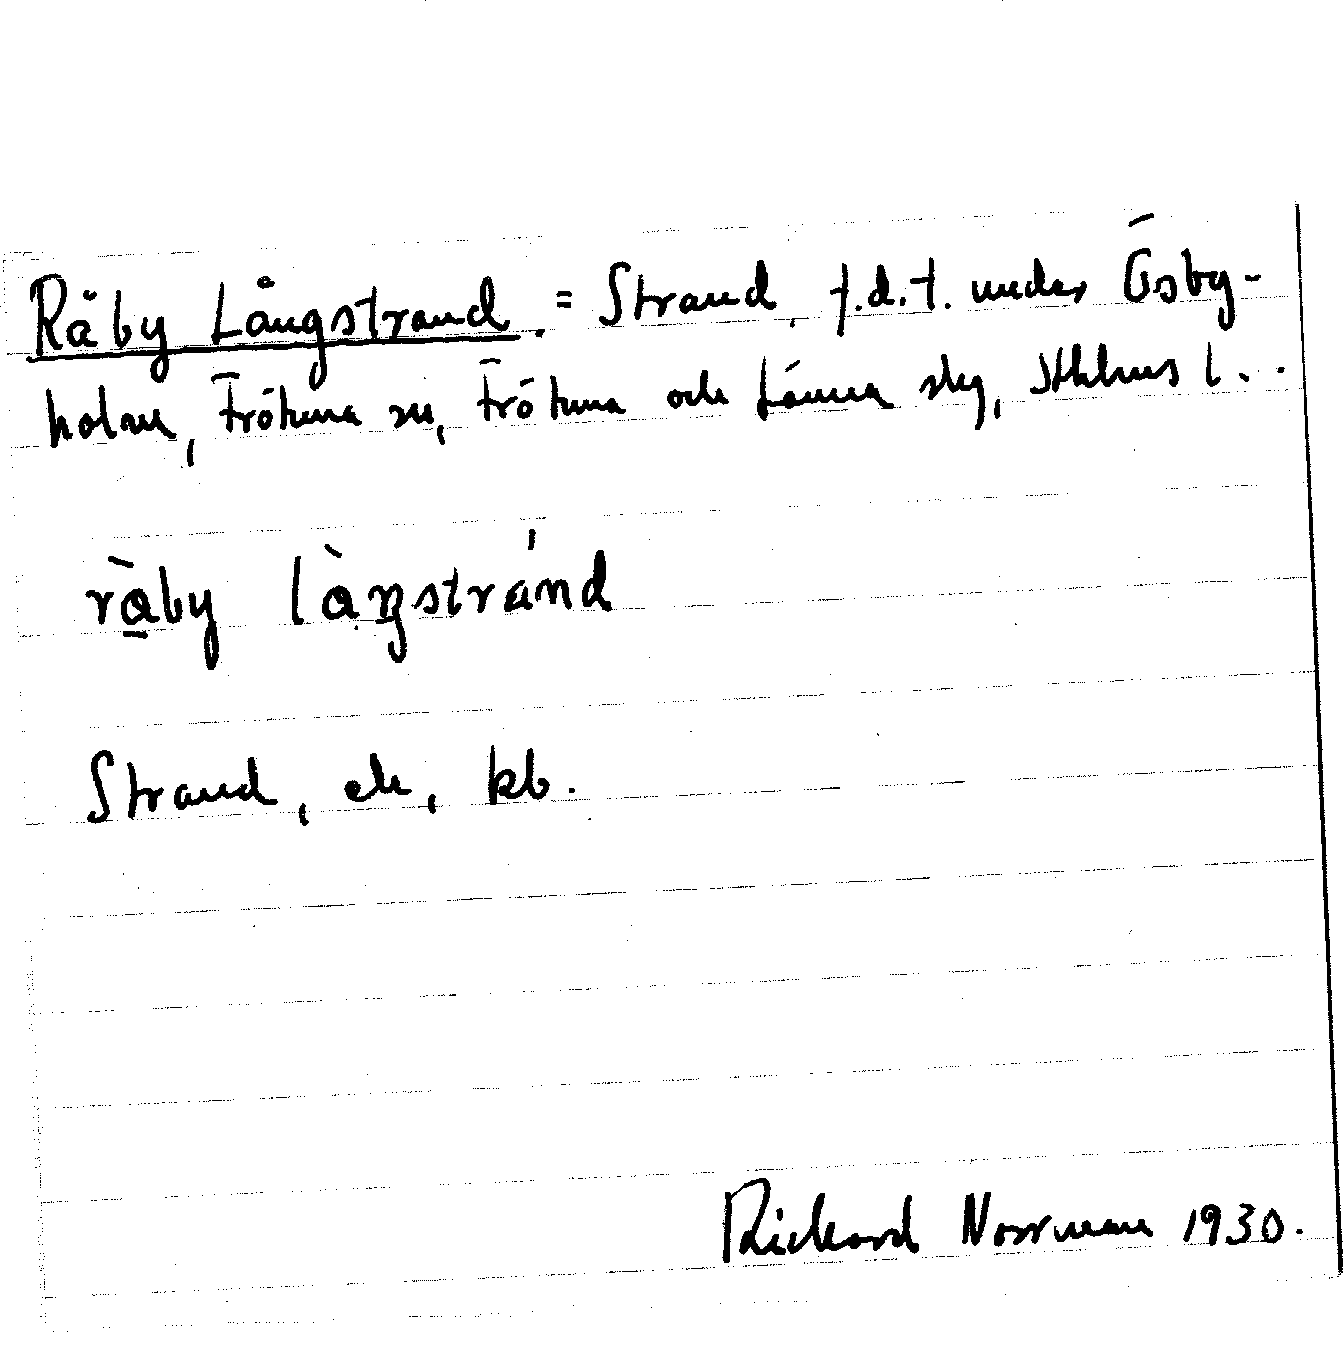 Råby Långstrand. = Strand, f.d.t. under Ösby-
holm, Frötuna sn, Frötuna och Länna slg, Sthlms l..
ràby làŋstránd
Strand, ek, kb.
Rickard Norrman 1930.